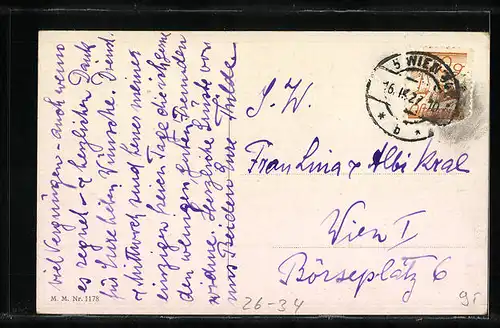 viel Vergnügen - auch wenn
es regnet - & herzlichen Dank
für Eure lieben Wünsche. Dienst.
& Mittwoch sind heuer meine
einzigen freien Tage die ich
den wenigen guten Freunden
widme. Herzliche Grüsse von
uns Beiden Eure Thilde
M. M. Nr. 1178
5 WIEN
6.IX.27
* b *
S. W.
Frau Lina & Albi Kral
Wien I
Börseplatz 6
26-34
95